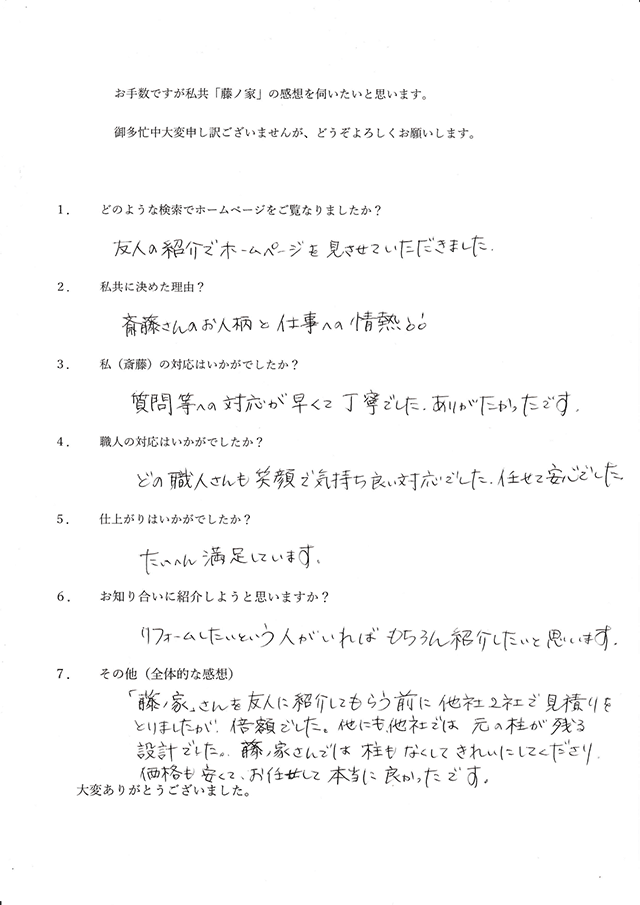 お手数ですが私共「藤ノ家」の感想を伺いたいと思います。
御多忙中大変申し訳ございませんが、どうぞよろしくお願いします。
1. どのような検索でホームページをご覧なりましたか？
友人の紹介でホームページを見させていただきました.
2. 私共に決めた理由？
斎藤さんのお人柄と仕事への情熱!!
3. 私（斎藤）の対応はいかがでしたか？
質問等への対応が早くて丁寧でした.ありがたかったです.
4. 職人の対応はいかがでしたか？
どの職人さんも笑顔で気持ち良い対応でした.任せて安心でした
5. 仕上がりはいかがでしたか？
たいへん満足しています.
6. お知り合いに紹介しようと思いますか？
リフォームしたいという人がいればもちろん紹介したいと思います.
7. その他（全体的な感想）
「藤ノ家」さんを友人に紹介してもらう前に他社2社で見積りを
とりましたが、倍額でした。他にも、他社では元の柱が残る
設計でした。藤ノ家さんでは柱もなくしてきれいにしてくださり、
価格も安くて、お任せして本当に良かったです。
大変ありがとうございました。